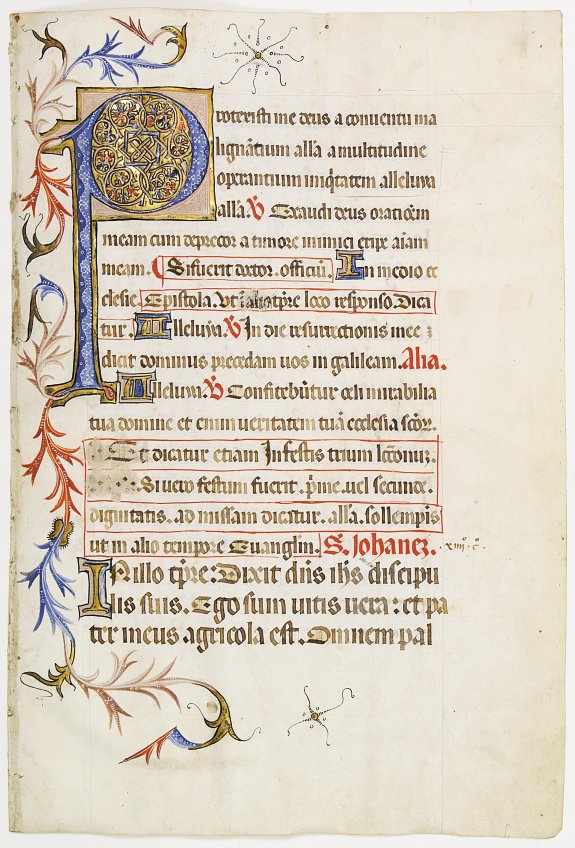 Protexisti me deus a conventu ma
lignãtium all'a a multitudine
operantium iniq̃tatem alleluya
all'a. ℣ Exaudi deus orationem
meam cum deprecor a timore inimici eripe aĩam
meam. Si fuerit doctor. officiũ. In medio ec
clesie. Epistola. Vt tp̃re loco responso. Dica
tur. Alleluya. ℣ In die resurrectionis mee
dicit dominus precedam uos in galileam. Alia.
Alleluya. ℣ Confitebũtur celi mirabilia
tua domine et enim ueritatem tuã ecclesia sc̃oꝝ.
dicatur etiam In festis trium lc̃onuꝝ.
Si uero festum fuerit. p̃me. uel secunde.
dignitatis. ad missam dicatur. all'a. sollempĩs
ut in alio tempore Euangl'm. S. Johanez. xiiij. c̊.
IN illo tp̃re: Dixit dñs ihs discipu
lis suis. Ego sum uitis uera: et pa
ter meus agricola est. Omnem pal